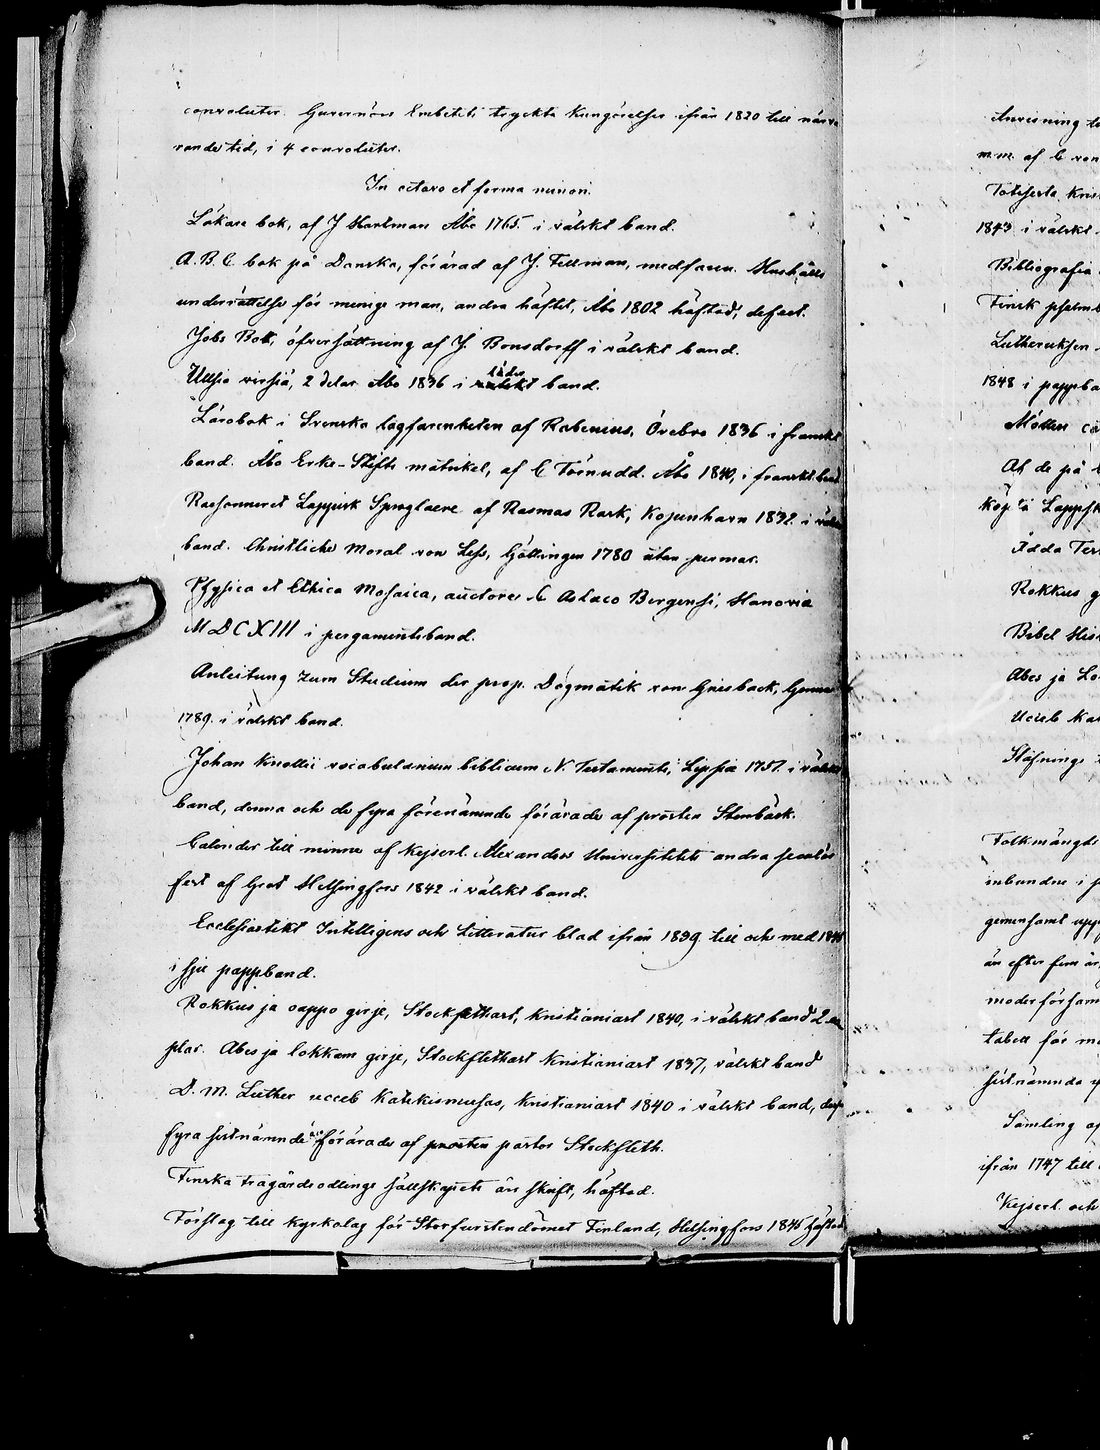 convoluter. Guvernörs Embetets tryckta Kungörelser ifrån 1820 till närva
rande tid, i 4 convoluter.
In octavo et forma minori.
Läkare bok, af J Hartman Åbo 1765. i välskt band.
A.B.C. bok på Danska, förärad af J. Fellman, medfaren. Hushålls
underrättelse för menige man, andra häftet, Åbo 1802 häftad, defect.
Jobs Bok, öfversättning af J. Bonsdorff i välskt band.
Uusia virsiä, 2 delar Åbo 1836 i välskt läder band.
Lärobok i Svenska lagfarenheten af Rabenius, Örebro 1836 i franskt
band. Åbo Erke-Stifts matrikel, af C Törnudd. Åbo 1840, i franskt band
Raesonneret Lappisk Sproglaere af Rasmus Rask, Kopenhavn 1832 i välskt
band. Christliche Moral von Less, Göttingen 1780 utan permar.
Physica et Ethica Mosaica, auctore C Aslaco Bergensi, Hanovia
MDCXIII i pergamentsband.
Anleitung zum Studium der pop. Dogmatik von Griesback,
1789. i välskt band.
Johan Knollii vocabularium biblicum N. Testamenti, Lipsia 1751. i välskt
band, denna och de fyra förenämnde förärade af prosten Stenbäck.
Calender till minne af Kejserl. Alexanders Universitetets andra secular
fest af Grot Helsingfors 1842 i välskt band.
Ecclesiastikt Intelligens och Litteratur blad ifrån 1839 till och med 1845
i sju pappband.
Rokkus ja oappo girje, Stockflethast, Kristianiast 1840, i välskt band 2 ex
plar. Abes ja lokkam girje, Stockflethast Kristianiast 1837, välskt band
D. M. Luther ucceb Katekismusas, Kristianiast 1840 i välskt band, dessa
fyra sistnämnde äro förärade af prosten pastor Stockfleth.
Finska trägårdsodlings sällskapets års skrift, häftad.
Förslag till Kyrkolag för Storfurstendömet Finland, Helsingfors 1845 häftad
Anvisning
m.m. af C von
1843 i välskt
Bibliografia
Finsk psalmb
Lutheruksen
1848 i pappba
Af de på
köpta Lappsk
Ådda Tes
Rokkus g
Bibel His
Abes ja Lo
Ucceb Ka
Folkmängds
inbundne i p
gemensamt upp
än efter fem år
moderförsam
tabell för m
sistnämnda
Samling af
ifrån 1747 till
Kejserl. och